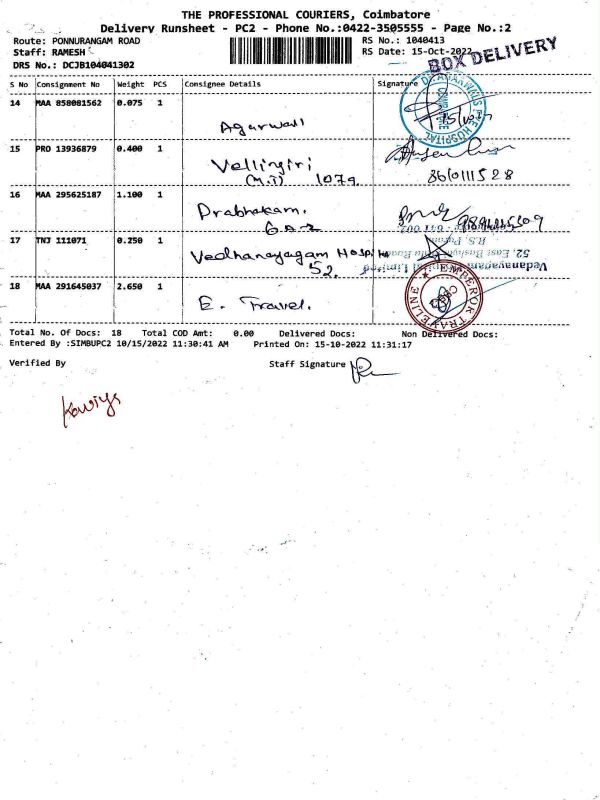 THE PROFESSIONAL COURIERS, Coimbatore
Delivery Runsheet - PC2 - Phone No.:0422-3505555 - Page No.:2
Route: PONNURANGAM ROAD RS No.: 1040413
Staff: RAMESH RS Date: 15-Oct-2022
BOX DELIVERY
DRS No.: DCJB104041302
S No Consignment No Weight PCS Consignee Details Signature
14 MAA 858081562 0.075 1 Agarwall
15 PRO 13936879 0.400 1 Vellingiri
(M.T) 1079. 8601111528
16 MAA 295625187 1.100 1 Prabhakam.
17 TNJ 111071 0.250 1 Vedhanayagam Hospital
52.
R.S. Puram
52. East Bashyakaralu Road
Vedanayagam Hospital Limited
18 MAA 291645037 2.650 1 E. Travel.
EMPEROR TRAVELINE
Total No. Of Docs: 18 Total COD Amt: 0.00 Delivered Docs: Non Delivered Docs:
Entered By :SIMBUPC2 10/15/2022 11:30:41 AM Printed On: 15-10-2022 11:31:17
Verified By Staff Signature